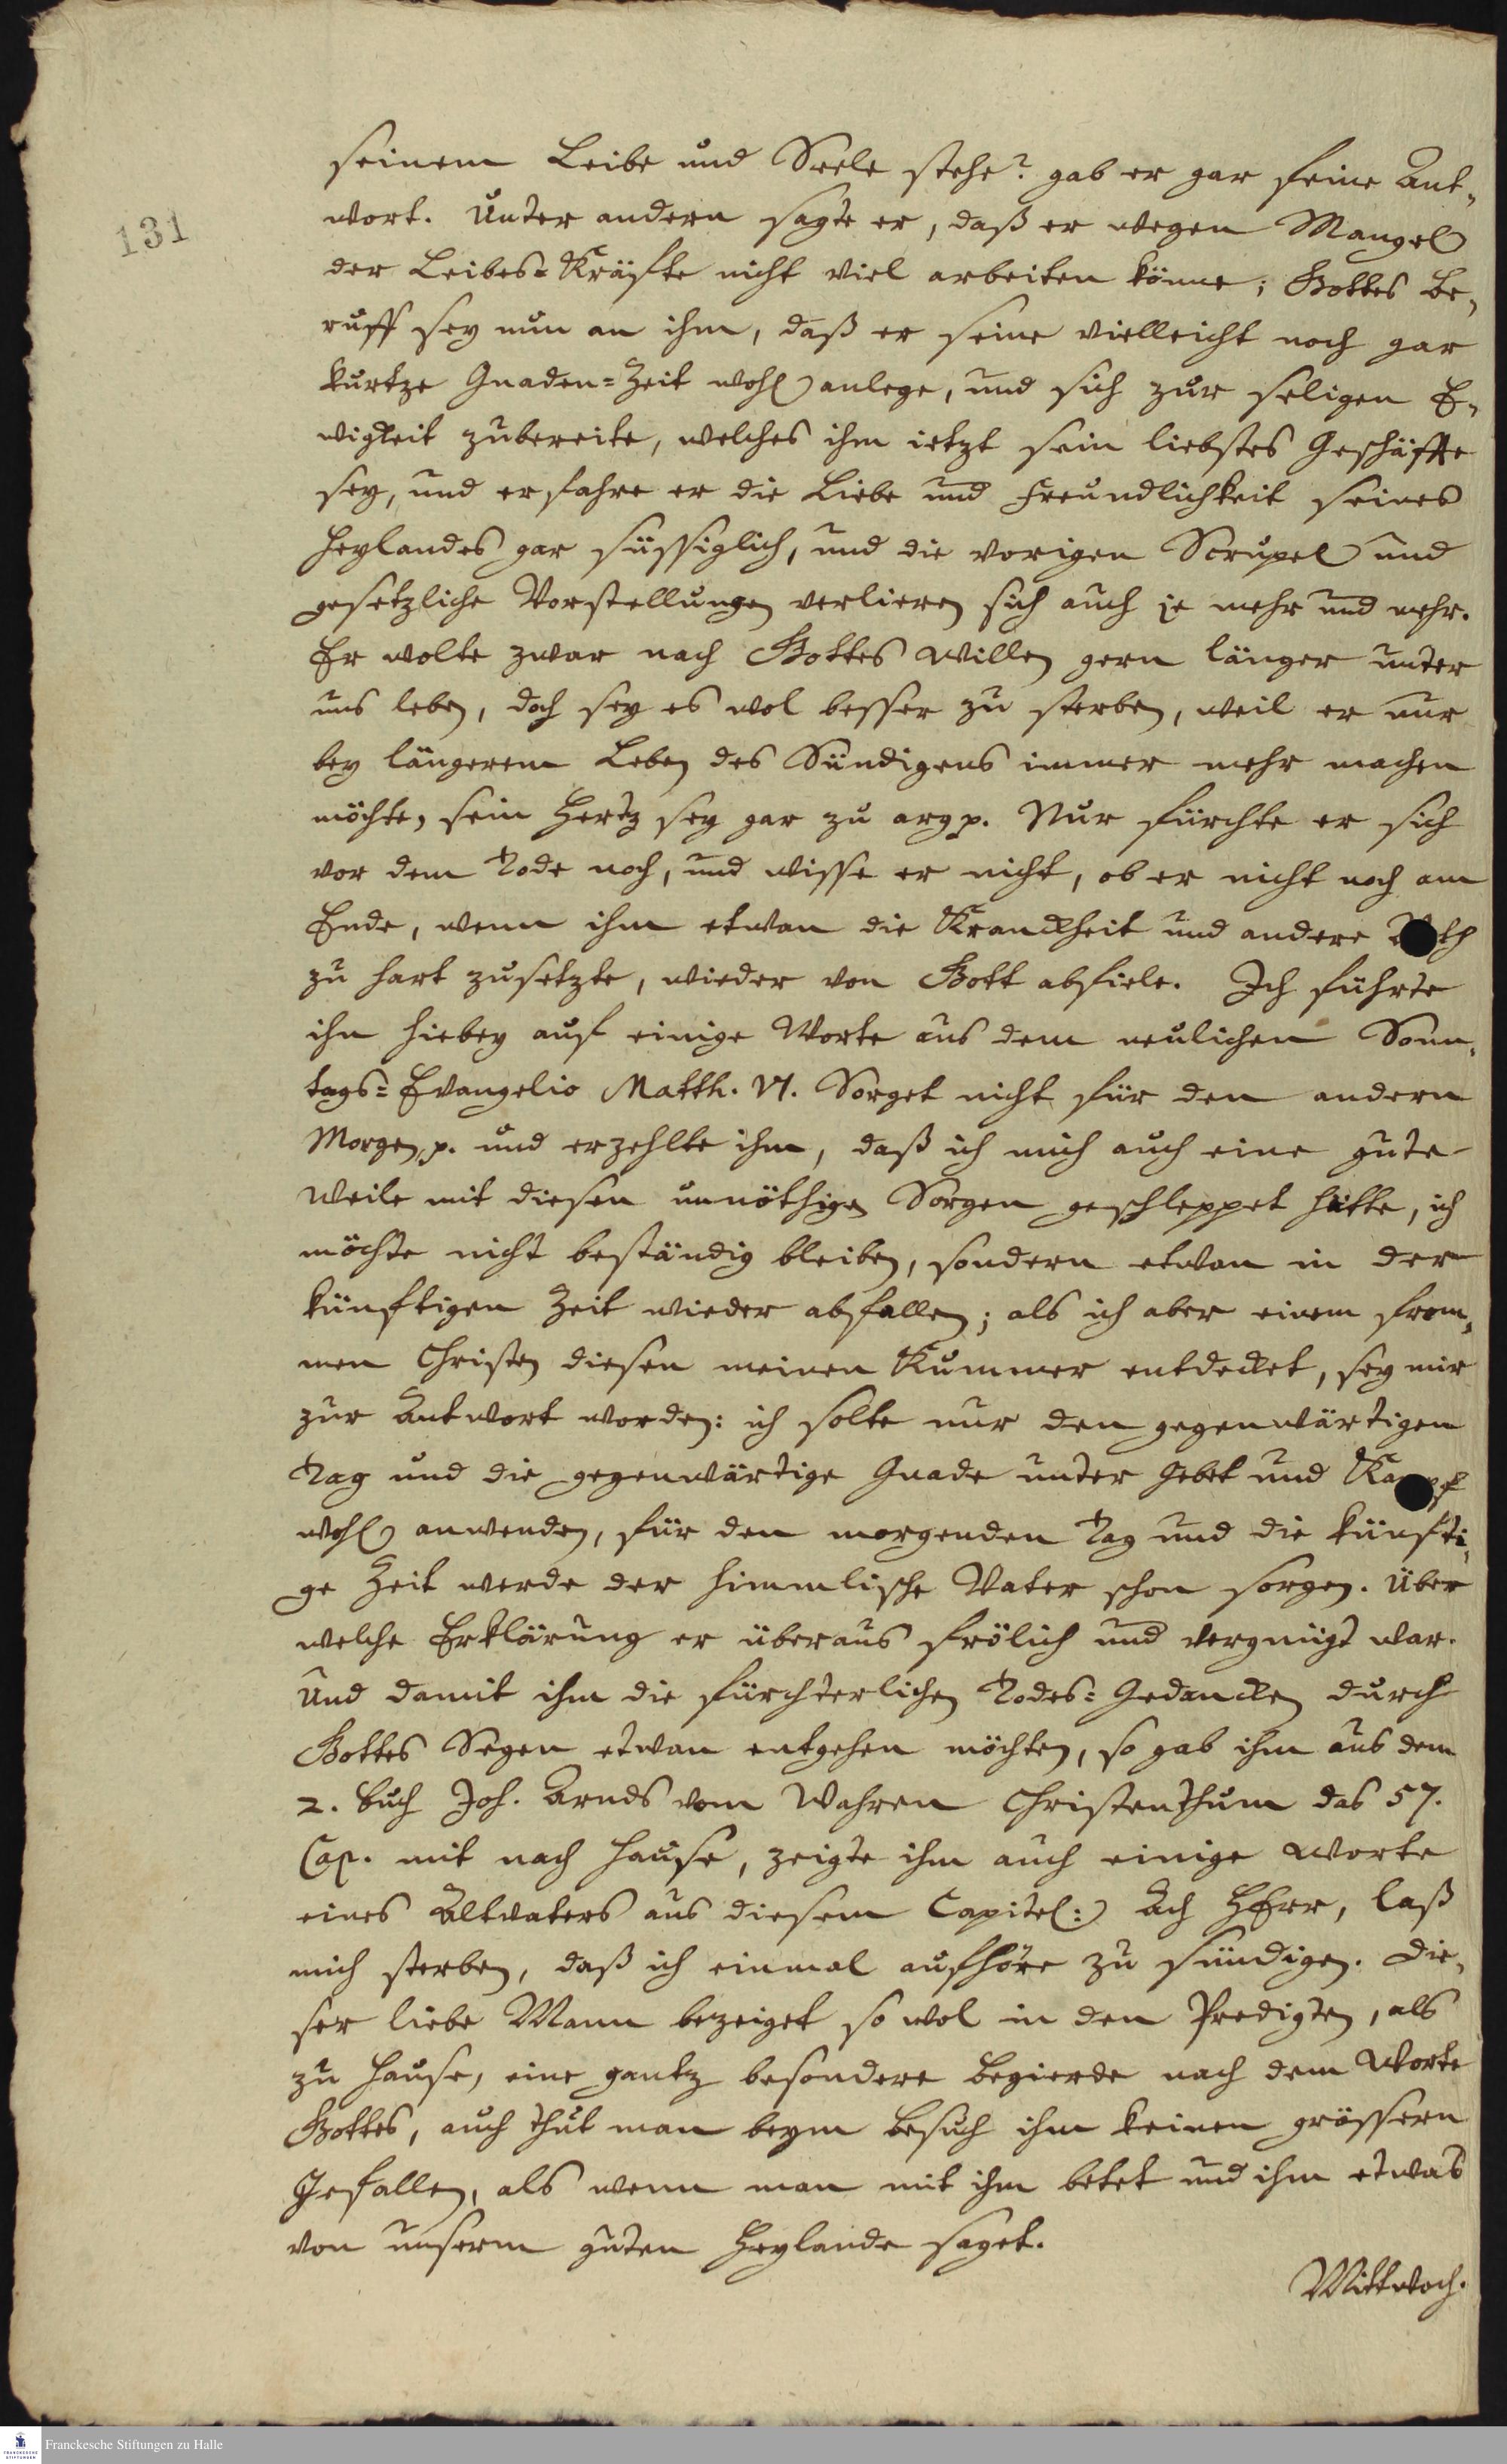 131
seinem Leibe und Seele stehe? gab er gar feine Ant-
wort. Unter andern sagte er, daß er wegen Mangel
der Leibes-Kräfte nicht viel arbeiten könne; Gottes Be-
ruff sey nun an ihm, daß er seine vielleicht noch gar
kurtze Gnaden-Zeit wohl anlege, und sich zur seligen E-
wigkeit zubereite, welches ihm ietzt sein liebstes Geschäffte
sey, und erfahre er die Liebe und Freundlichkeit seines
Heylandes gar süssiglich, und die vorigen Scrupel und
gesetzliche Vorstellungen verlieren sich auch je mehr und mehr.
Er wolte zwar nach Gottes Willen gern länger unter
uns leben, doch sey es wol besser zu sterben, weil er nur
bey längerem Leben des Sündigens immer mehr machen
möchte, sein Hertz sey gar zu arg p. Nur fürchte er sich
vor dem Tode noch, und wisse er nicht, ob er nicht noch am
Ende, wenn ihm etwan die Kranckheit und andere Noth
zu hart zusetzte, wieder von Gott abfiele. Ich führte
ihn hiebey auf einige Worte aus dem neulichen Sonn-
tags-Evangelio Matth. VI. Sorget nicht für den andern
Morgen p. und erzehlte ihm, daß ich mich auch eine gute
Weile mit diesen unnöthigen Sorgen geschleppet hätte, ich
möchte nicht beständig bleiben, sondern etwan in der
künftigen Zeit wieder abfallen; als ich aber einem from-
men Christen diesen meinen Kummer entdecket, sey mir
zur Antwort worden: ich solte nur den gegenwärtigen
Tag und die gegenwärtige Gnade unter Gebet und Kampf
wohl anwenden, für den morgenden Tag und die künfti-
ge Zeit werde der himmlische Vater schon sorgen. Über
welche Erklärung er überaus frölich und vergnügt war.
Und damit ihm die fürchterlichen Todes-Gedancken durch
Gottes Segen etwan entgehen möchten, so gab ihm aus dem
2. Buch Joh. Arnds vom Wahren Christenthum das 57.
Cap. mit nach Hause, zeigte ihm auch einige Worte
eines Altvaters aus diesem Capitel: Ach HErr, laß
mich sterben, daß ich einmal aufhöre zu sündigen. Die-
ser liebe Mann bezeiget so wol in den Predigten, als
zu Hause, eine gantz besondere Begierde nach dem Worte
Gottes, auch thut man beym Besuch ihm keinen grössern
Gefallen, als wenn man mit ihm betet und ihm etwas
von unserm guten Heylande saget.
Mittwoch.
Franckesche Stiftungen zu Halle